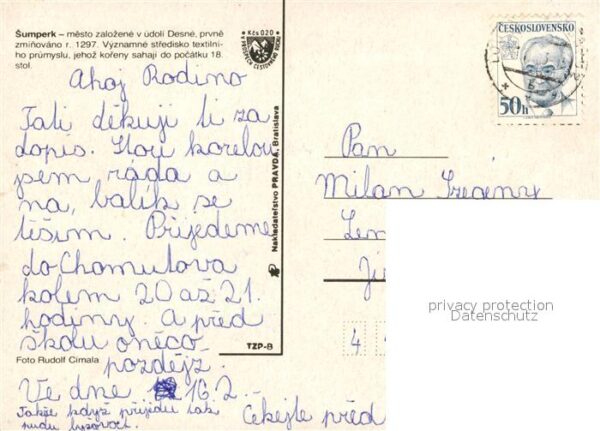 Šumperk – město založené v údolí Desné, prvně
zmiňováno r. 1297. Významné středisko textilní-
ho průmyslu, jehož kořeny sahají do počátku 18.
stol.
Kčs 0,20
ČESKOSLOVENSKO
50h
Ahoj Rodino
Tati děkuji ti za
dopis.
jsem ráda a
na, balík se
těším. Přijedeme
do Chomutova
kolem 20 až 21.
hodiny. A před
školu oněco
pozdějz.
Ve dne 16.2.
Takže když přijedu tak
Čekejte před
Foto Rudolf Cimala
TZP-B
Nakladatelstvo PRAVDA, Bratislava
Pan
Milan
4 4
privacy protection
Datenschutz